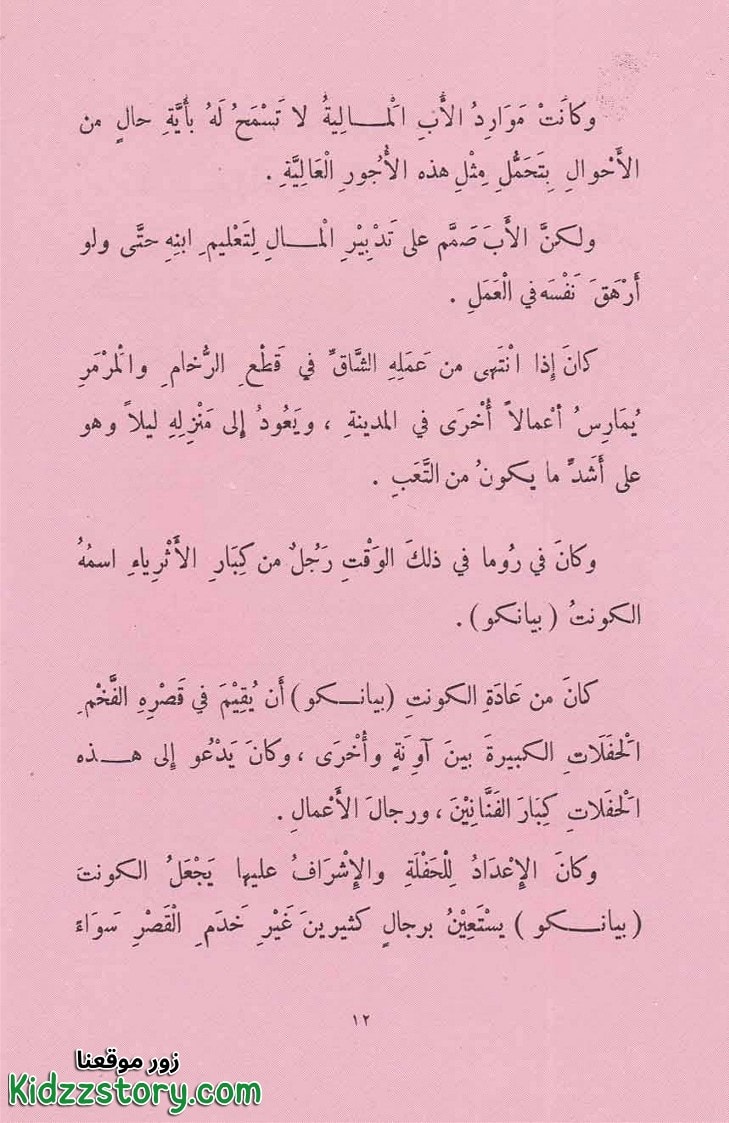 وكَانَتْ مَوَارِدُ الأَبِ الْمَـــالِيةُ لا تَسْمَحُ لَهُ بأَيَّةِ حالٍ من
الأَحْوالِ بِتَحَمُّلِ مِثْلِ هذه الأُجورِ الْعَالِيَّةِ .
ولكنَّ الأَبَ صَمَّم على تَدْبِيْرِ الْمـــالِ لِتَعْليمِ ابنِهِ حتَّى ولو
أَرْهَقَ نَفْسَه في الْعَمَلِ .
كانَ إِذا انْتَهى من عَمَلِهِ الشَّاقِّ في قَطْعِ الرُّخامِ والْمرْمَرِ
يُمَارِسُ أعْمالاً أُخْرَى في المدينةِ ، ويَعُودُ إِلى مَنْزِلِهِ ليلاً وهو
على أَشَدِّ ما يكونُ من التَّعَبِ .
وكانَ في رُوما في ذلكَ الوَقْتِ رَجُلٌ من كِبَارِ الأَثْرِياءِ اسمُهُ
الكونتُ ( بيانكو ) .
كانَ من عَادَةِ الكونتِ ( بيانـــكو ) أَن يُقِيْمَ في قَصْرِهِ الفَخْمِ
الْحفَلَاتِ الكبيرةَ بينَ آوِنَةٍ وأُخْرَى ، وكانَ يَدْعُو إِلى هـــذه
الْحفَلاتِ كِبَارَ الفَنَّانِيْنَ ، ورجالَ الأَعْمالِ .
وكانَ الإِعْدَادُ لِلْحَفْلَةِ والإِشْرَافُ عليها يَجْعَلُ الكونتَ
( بيانـــكو ) يستَعِيْنُ برجالٍ كثيرينَ غَيْرِ خَدَمِ الْقَصْرِ سَوَاءً
١٢
زور موقعنا
Kidzzstory.com